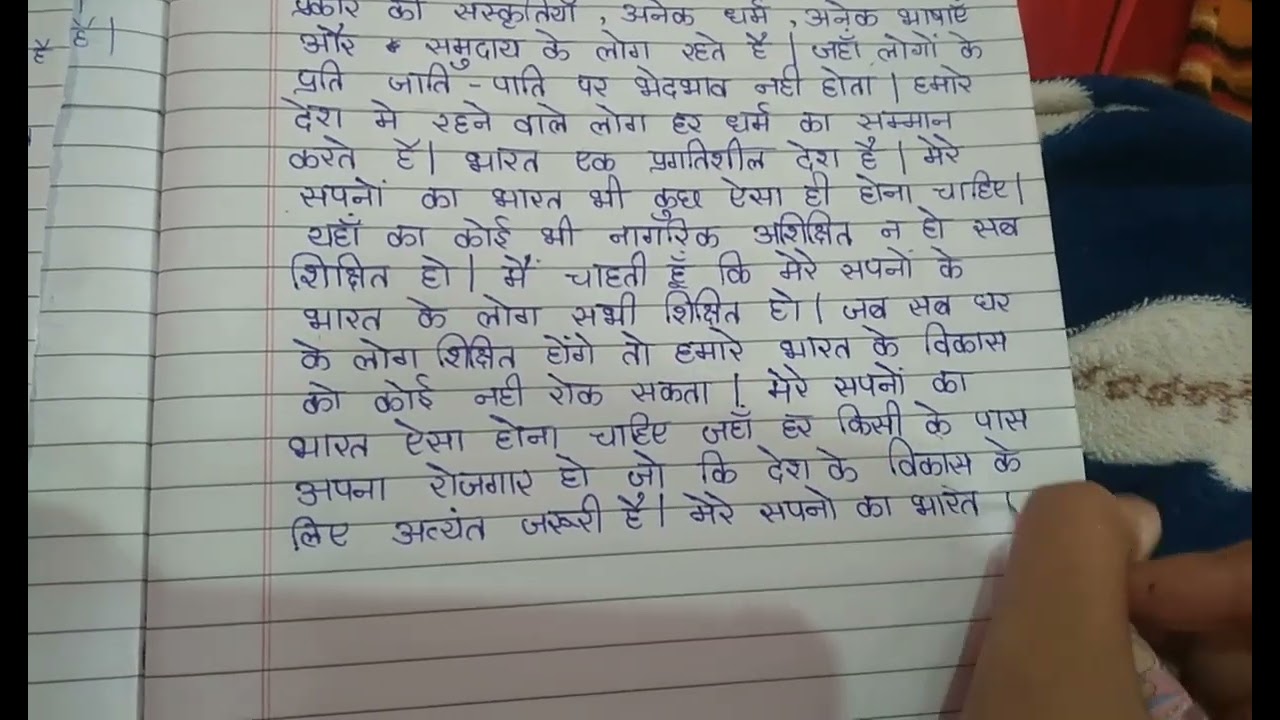 है
है।
प्रकार की संस्कृतियाँ, अनेक धर्म, अनेक भाषाएँ
और समुदाय के लोग रहते है। जहाँ लोगों के
प्रति जाति-पाति पर भेदभाव नही होता। हमारे
देश मे रहने वाले लोग हर धर्म का सम्मान
करते है। भारत एक प्रगतिशील देश है। मेरे
सपनों का भारत भी कुछ ऐसा ही होना चाहिए।
यहाँ का कोई भी नागरिक अशिक्षित न हो सब
शिक्षित हो। मैं चाहती हूँ कि मेरे सपनों के
भारत के लोग सभी शिक्षित हो। जब सब घर
के लोग शिक्षित होंगे तो हमारे भारत के विकास
को कोई नही रोक सकता। मेरे सपनों का
भारत ऐसा होना चाहिए जहाँ हर किसी के पास
अपना रोजगार हो जो कि देश के विकास के
लिए अत्यंत जरूरी है। मेरे सपनो का भारत